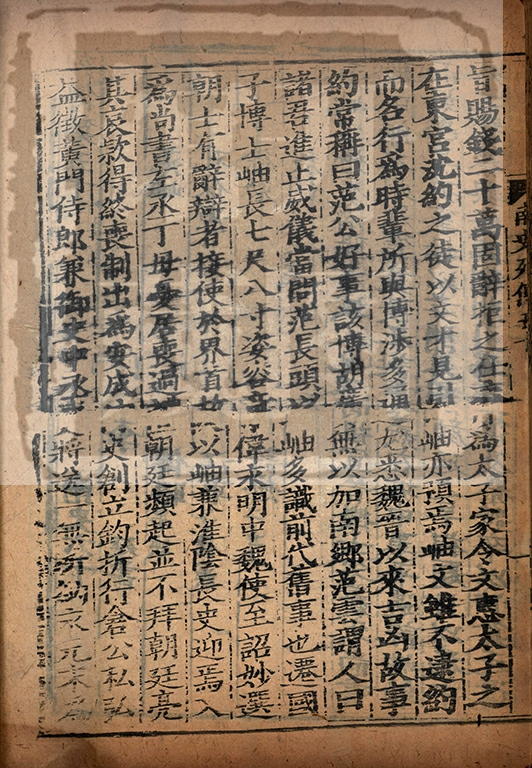 旨賜錢二十萬固辭拒之仕齊爲太子家令文惠太子之
在東宮沈約之徒以文才見引岫亦預焉岫文雖不逮約
而名行爲時輩所與博涉多通尤悉魏晉以來吉凶故事
約常稱曰范公好事該博胡廣無以加南鄉范雲謂人曰
諸君進止威儀當問范長頭以岫多識前代舊事也遷國
子博士岫長七尺八寸姿容奇偉永明中魏使至詔妙選
朝士有辭辯者接使於界首故以岫兼淮陰長史迎焉入
爲尚書左丞丁母憂居喪過禮朝廷頻起並不拜朝廷亮
其哀款得終喪制出爲安成內史創立鈞折行倉公私弘
益徵黃門侍郎兼御史中丞吏將送一無所納永元末爲